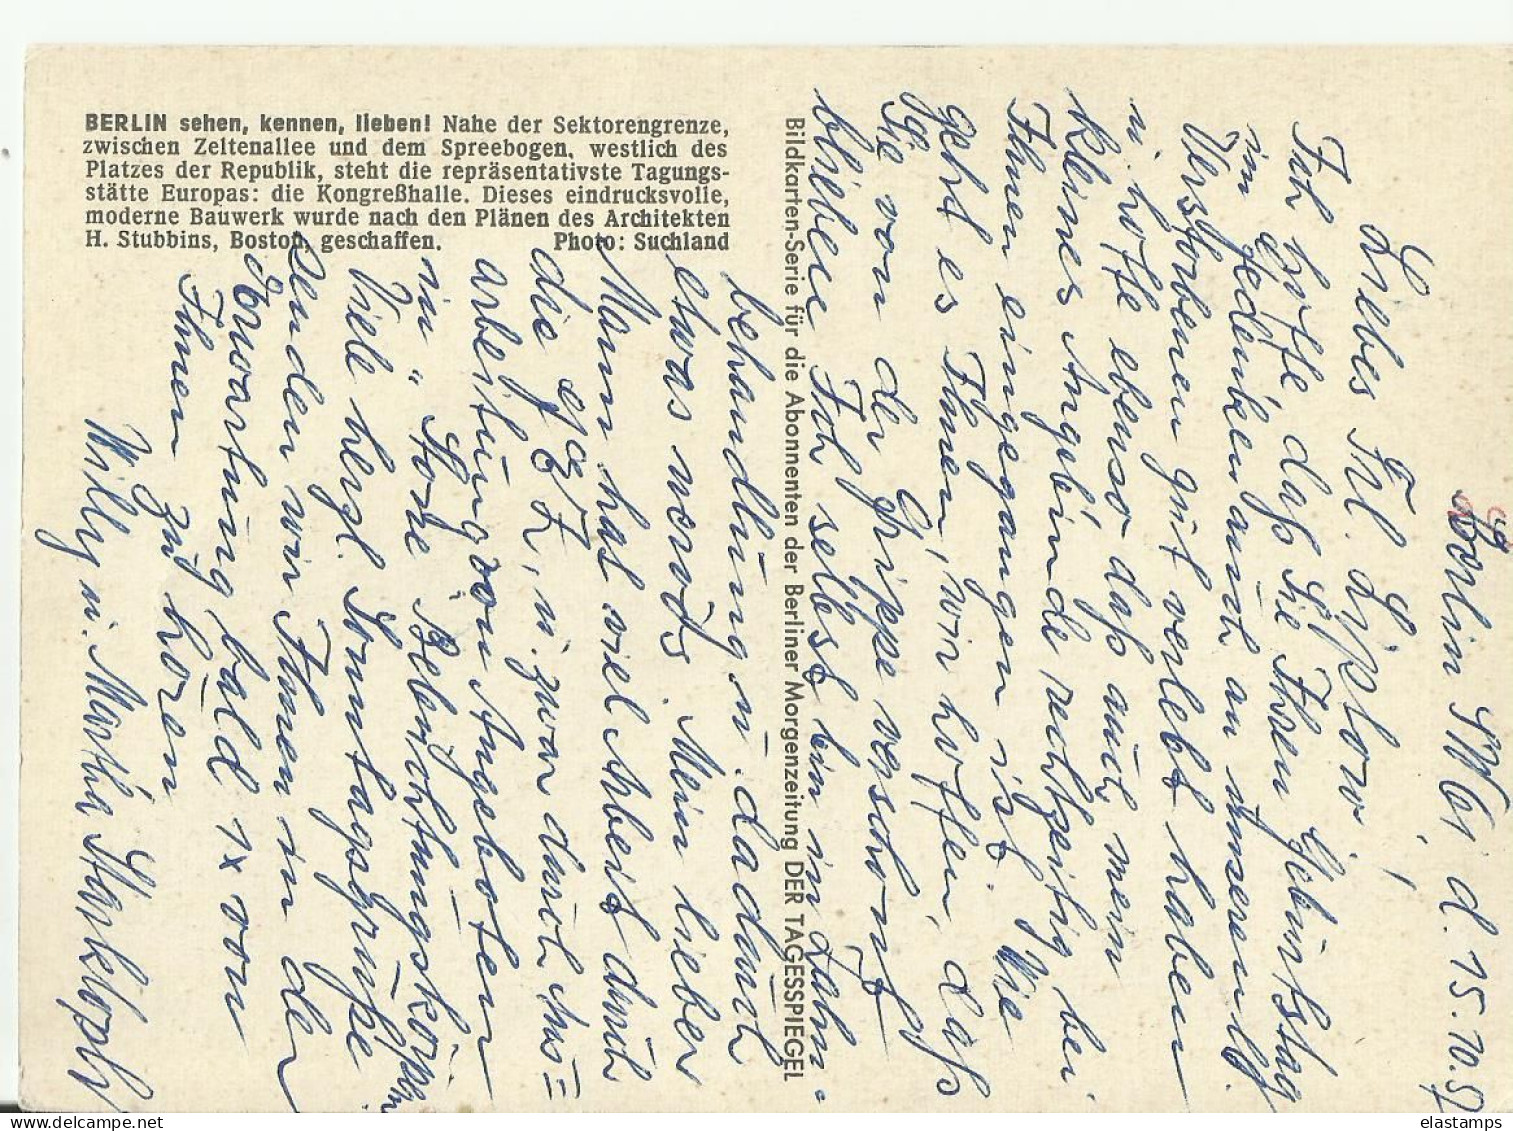 BERLIN sehen, kennen, lieben! Nahe der Sektorengrenze,
zwischen Zeltenallee und dem Spreebogen, westlich des
Platzes der Republik, steht die repräsentativste Tagungs-
stätte Europas: die Kongreßhalle. Dieses eindrucksvolle,
moderne Bauwerk wurde nach den Plänen des Architekten
H. Stubbins, Boston, geschaffen. Photo: Suchland
Bildkarten-Serie für die Abonnenten der Berliner Morgenzeitung DER TAGESSPIEGEL
Berlin SW 61 d. 15.10.57
Liebes Frl. Lüplow!
Ich hoffe daß Sie Ihren Geburtstag
im Gedenken auch an unseren lb.
Verstorbenen gut verlebt haben
u. hoffe ebenso daß auch mein
kleines Angebinde rechtzeitig bei
Ihnen eingegangen ist. Wie
geht es Ihnen, wir hoffen, daß
Sie von der Grippe verschont
blieben. Ich selbst bin in Zahn-
behandlung u. dadurch
etwas nervös. Mein lieber
Mann hat viel Arbeit durch
die u. zwar durch Aus=
arbeitung von Angeboten
in " Berichtungskörper
Viele herzl. Sonntagsgrüße
senden wir Ihnen in der
Erwartung bald 1x von
Ihnen zu hören
Willy u. Martha Starkloph
elastamps